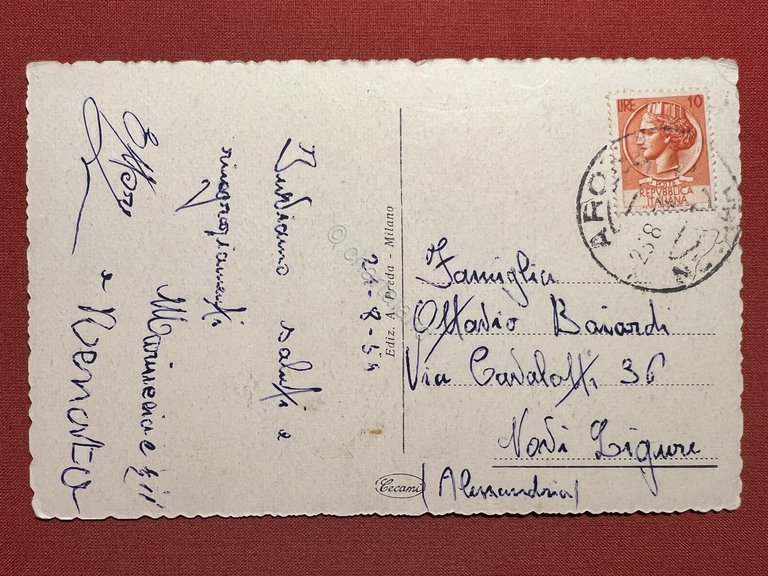 24-8-54
Inviamo saluti e
ringraziamenti
e Renata
Ediz. A. Preda - Milano
Cecami
LIRE 10
POSTE
REPVBBLICA
ITALIANA
ARO
Famiglia
Ottavio Baiardi
Via Cavalotti 36
Novi Ligure
(Alessandria)